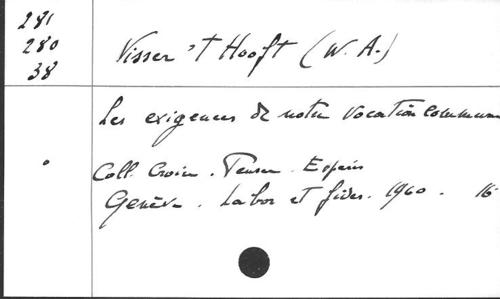 281
280
38
Visser 't Hooft (W. A.)
Les exigences de notre vocation commune
Coll. Croire. Penser. Espérer
Genève. Labor et fides. 1960. 16